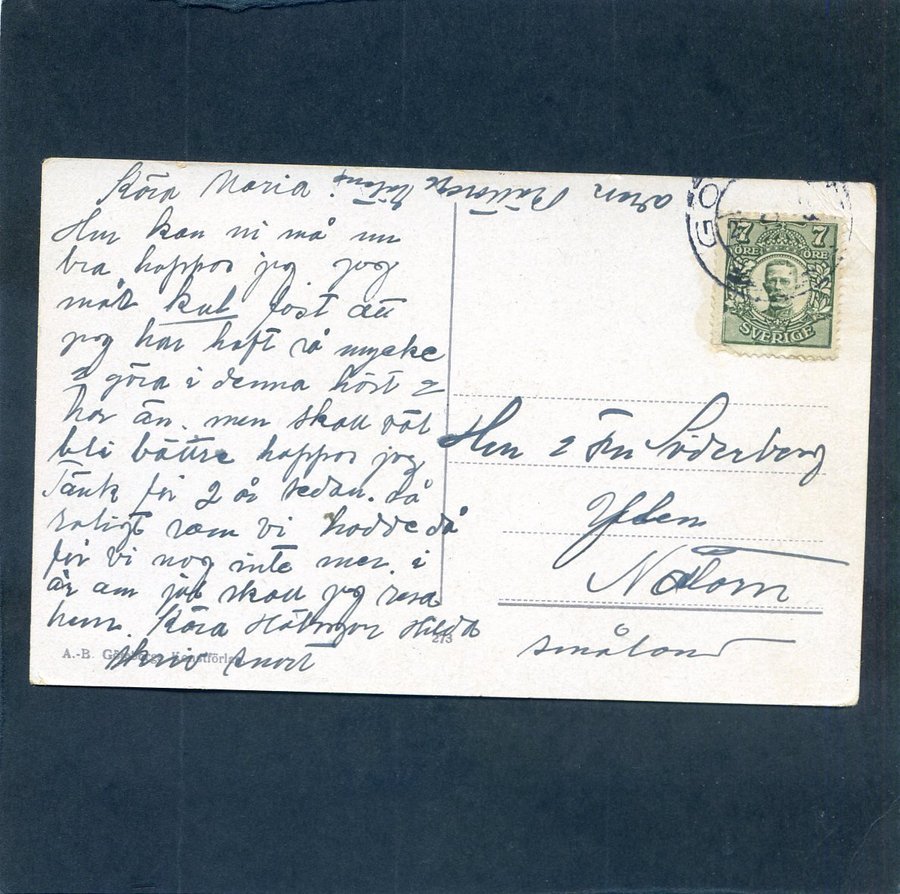 Kära Maria!
Hur kan ni må nu
bra hoppas jag jag
mår kul föst att
jag har haft så mycke
a göra i denna höst o
har än. men skall väl
bli bättre hoppas jag
Tänk för 2 år sedan. så
roligt som vi hadde då
får vi nog inte mer. i
år om jul skall jag resa
hem. Kära Hälsningar Hilda
skriv snart
GO
7 7
ÖRE ÖRE
SVERIGE
Herr o Fru Söderberg
Småland
A.-B. Göteborgs Konstförlag
273